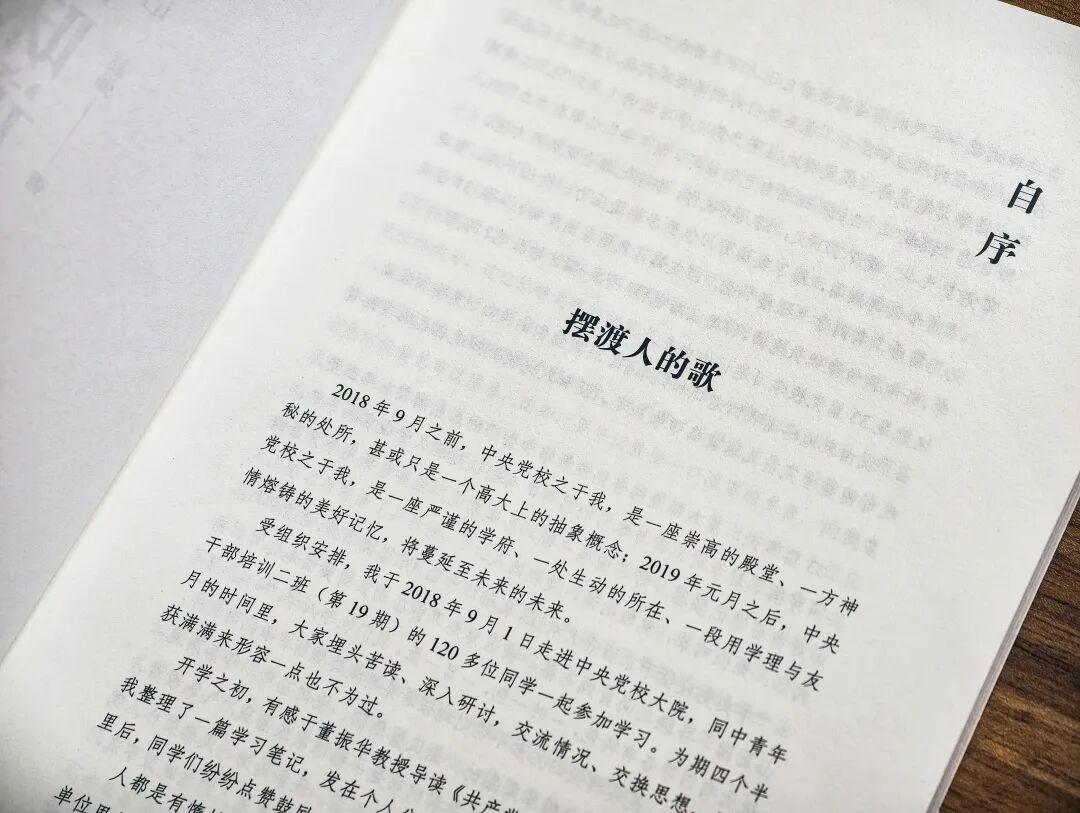 自序
摆渡人的歌
2018年9月之前，中央党校之于我，是一座崇高的殿堂、一方神
秘的处所，甚或只是一个高大上的抽象概念；2019年元月之后，中央
党校之于我，是一座严谨的学府、一处生动的所在、一段用学理与友
情熔铸的美好记忆，将蔓延至未来的未来。
受组织安排，我于2018年9月1日走进中央党校大院，同中青年
干部培训二班（第19期）的120多位同学一起参加学习。为期四个半
月的时间里，大家埋头苦读、深入研讨，交流情况、交换思想，
获满满来形容一点也不为过。
开学之初，有感于董振华教授导读《共产党
我整理了一篇学习笔记，发在个人公
里后，同学们纷纷点赞鼓励
人都是有惰
单位里